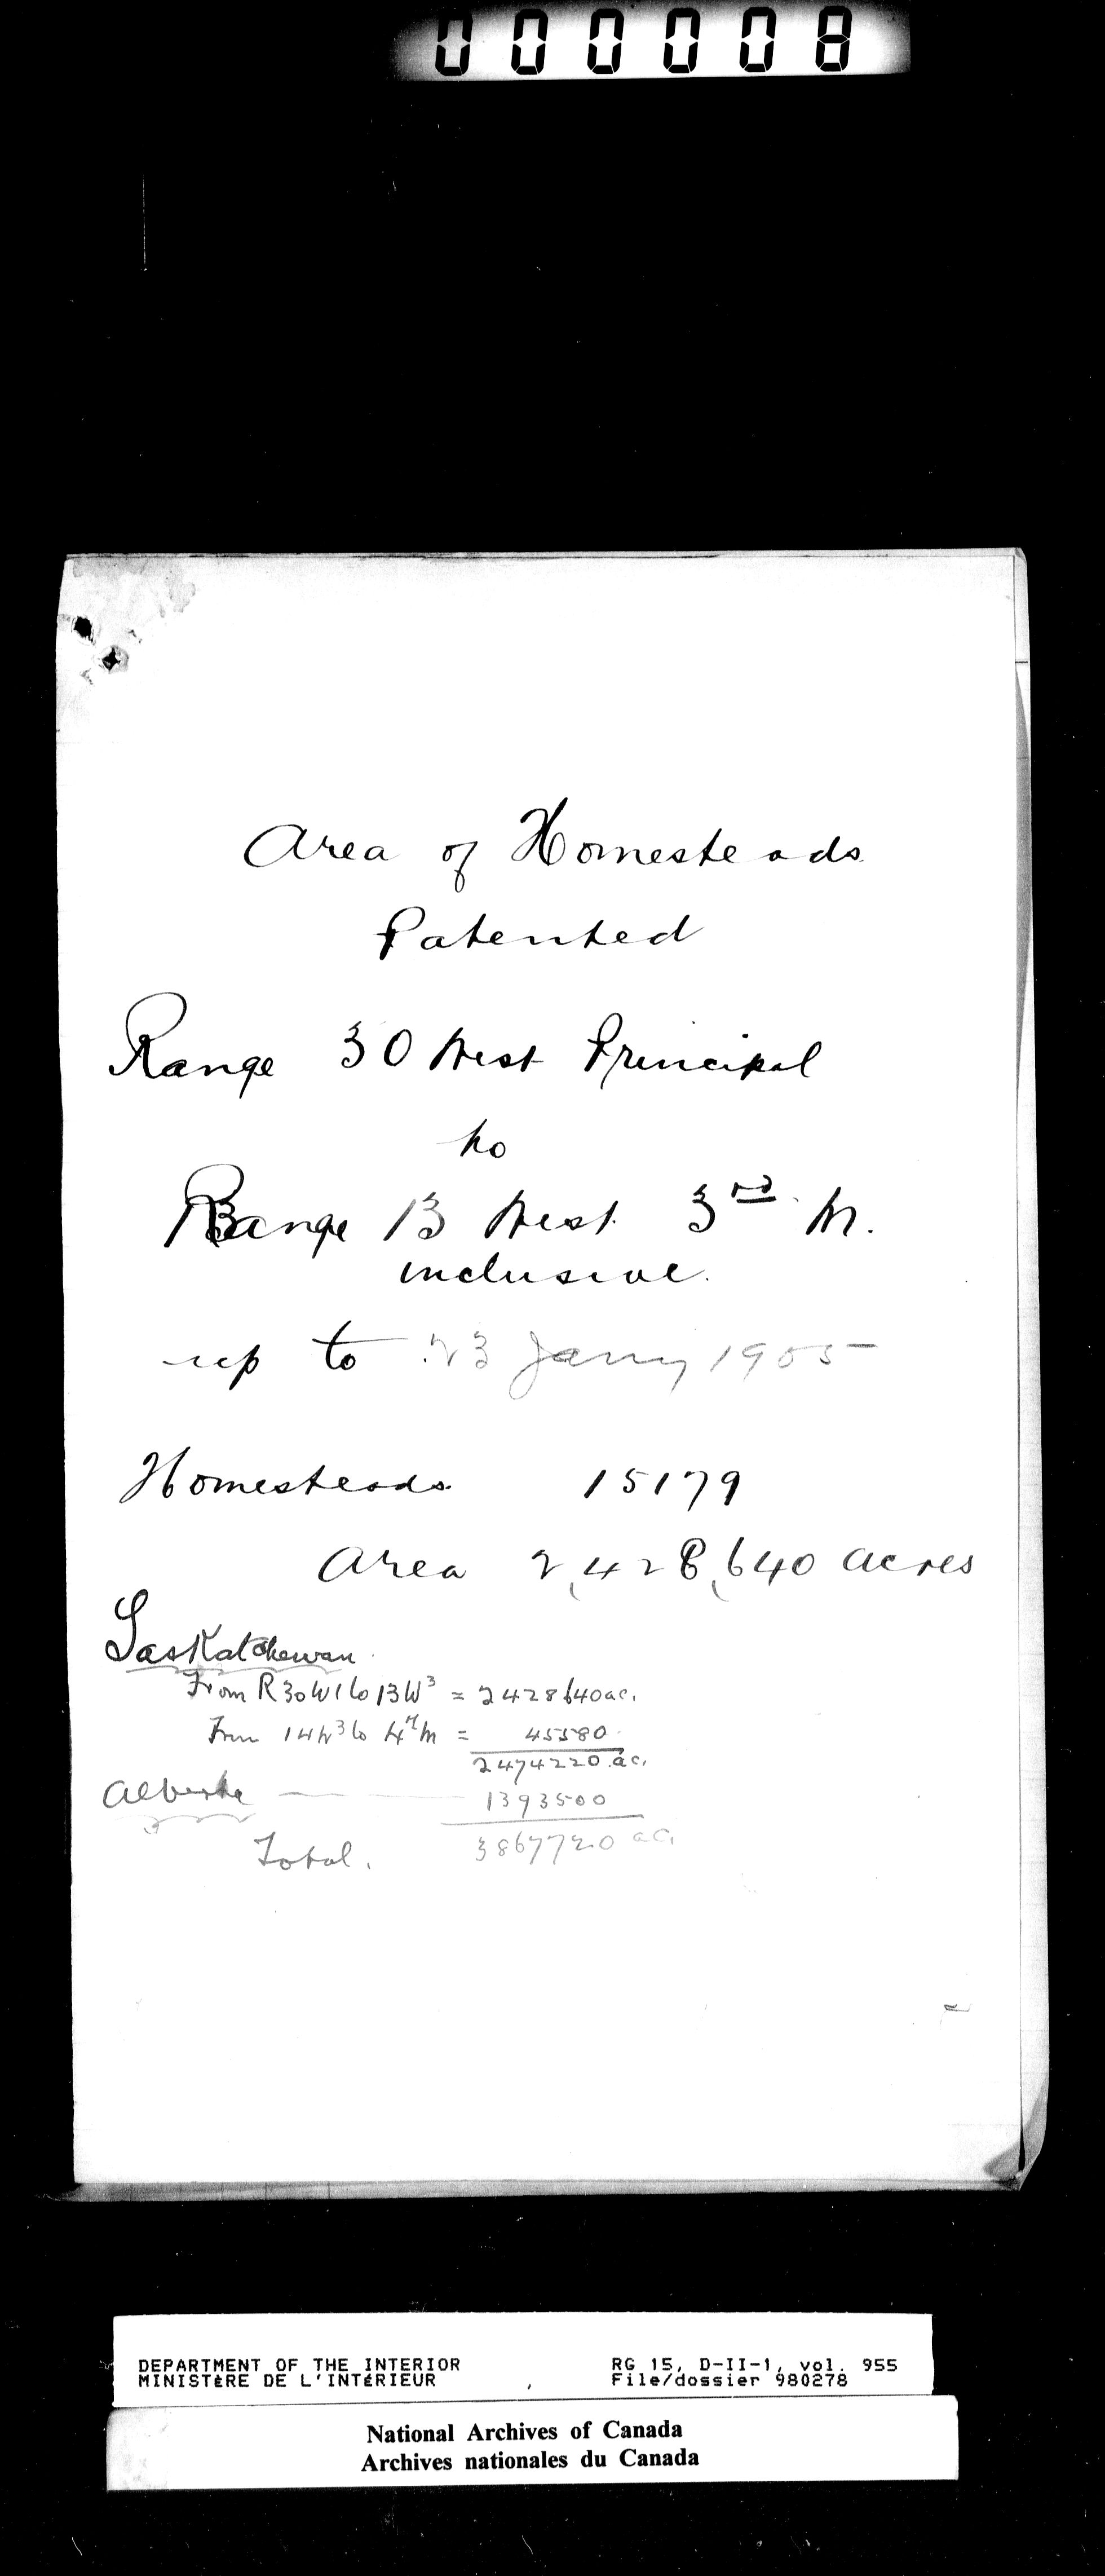 000008
Area of Homesteads
Patented
Range 30 West Principal
to
Range 13 West 3rd M.
inclusive.
up to 23 Jany 1905
Homesteads 15179
Area 2,428,640 acres
Saskatchewan
From R30W1 to 13W3 = 2428640 ac.
From 14W3 to 4th M = 45580
2474220 ac.
Alberta 1393500
Total. 3867720 ac.
DEPARTMENT OF THE INTERIOR RG 15, D-II-1, vol. 955
MINISTÈRE DE L'INTÉRIEUR File/dossier 980278
National Archives of Canada
Archives nationales du Canada